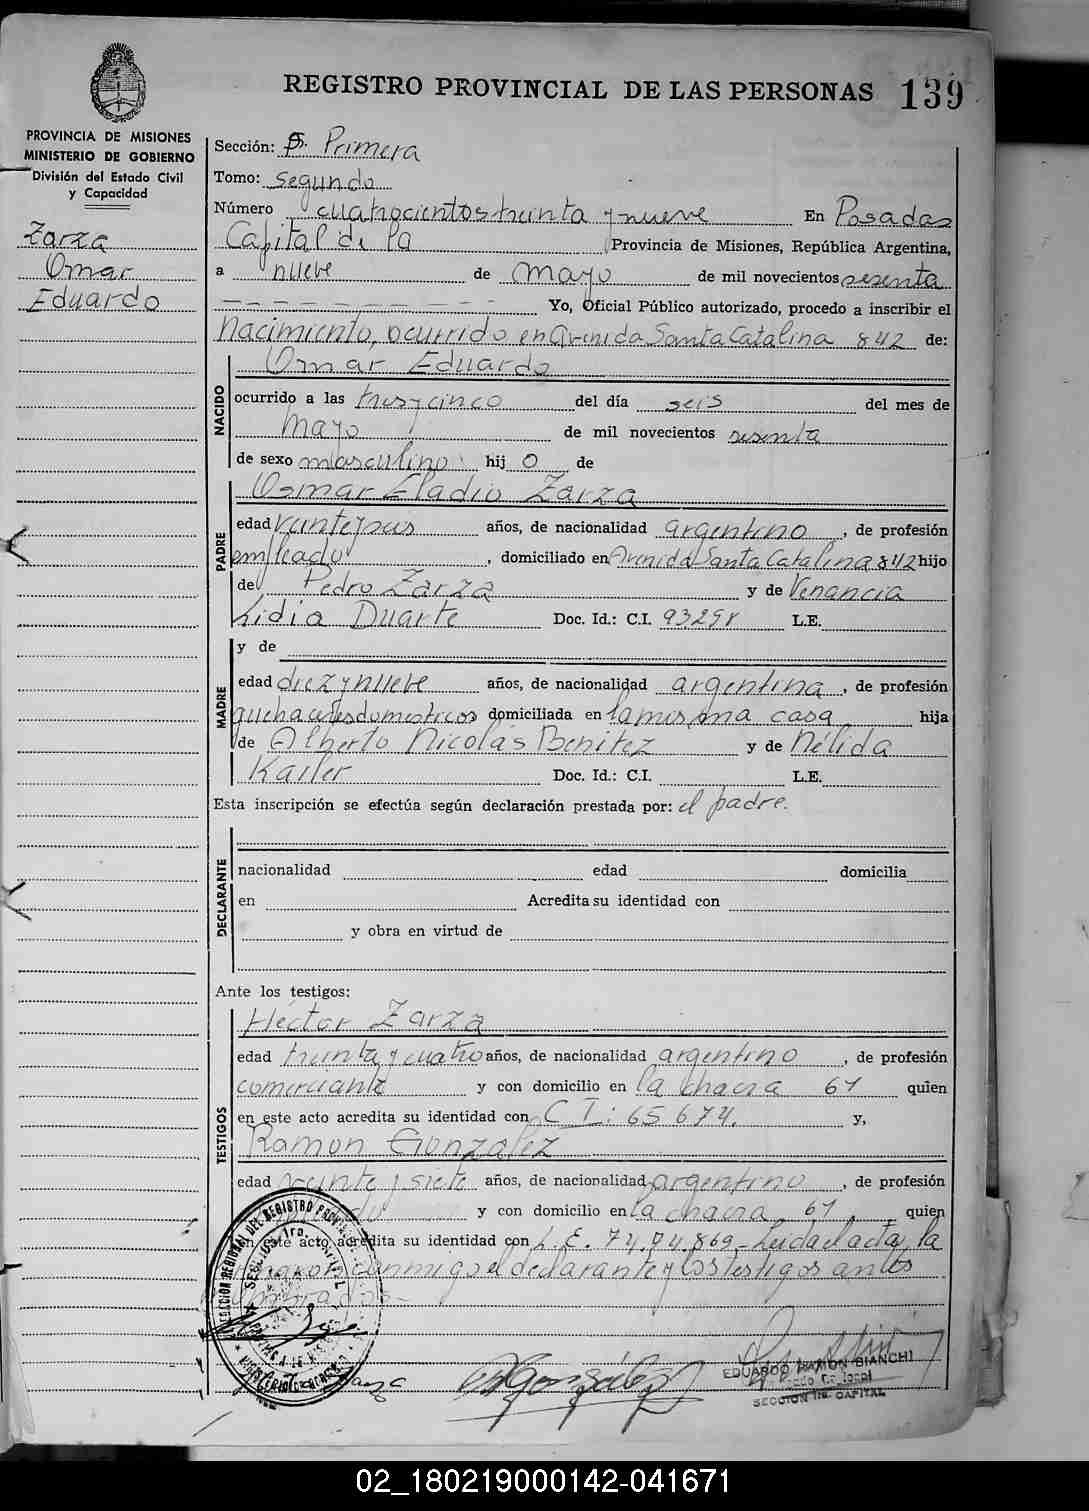 REGISTRO PROVINCIAL DE LAS PERSONAS 139
PROVINCIA DE MISIONES
MINISTERIO DE GOBIERNO
División del Estado Civil
y Capacidad
Zarza
Omar
Eduardo
Sección: Primera
Tomo: Segundo
Número cuatrocientos treinta y nueve En Posadas
Capital de la Provincia de Misiones, República Argentina,
a nueve de mayo de mil novecientos sesenta
Yo, Oficial Público autorizado, procedo a inscribir el
Nacimiento, ocurrido en Avenida Santa Catalina 842 de:
Omar Eduardo
NACIDO
ocurrido a las tres y cinco del día seis del mes de
Mayo de mil novecientos sesenta
de sexo masculino hij o de
Osmar Eladio Zarza
PADRE
edad años, de nacionalidad argentino, de profesión
empleado, domiciliado en Avenida Santa Catalina 842 hijo
de Pedro Zarza y de Venancia
Lidia Duarte Doc. Id.: C.I. 93298 L.E.
y de
MADRE
edad diez y nueve años, de nacionalidad argentina, de profesión
quehaceres domesticos domiciliada en la misma casa hija
de Alberto Nicolás Benitez y de Nélida
Doc. Id.: C.I. L.E.
Esta inscripción se efectúa según declaración prestada por: el padre.
DECLARANTE
nacionalidad edad domicilia
en Acredita su identidad con
y obra en virtud de
Ante los testigos:
Héctor Zarza
TESTIGOS
edad treinta y cuatro años, de nacionalidad argentino, de profesión
comerciante y con domicilio en la chacra 67 quien
en este acto acredita su identidad con C I: 65674. y,
Ramon Gonzalez
edad veinte y siete años, de nacionalidad argentino, de profesión
y con domicilio en la chacra 67, quien
en este acto acredita su identidad con L.E. 74.04.869- Leida el acta, la
conmigo el declarante y los testigos antes
EDUARDO RAMON BIANCHI
SECCION 1ra. CAPITAL
02_180219000142-041671